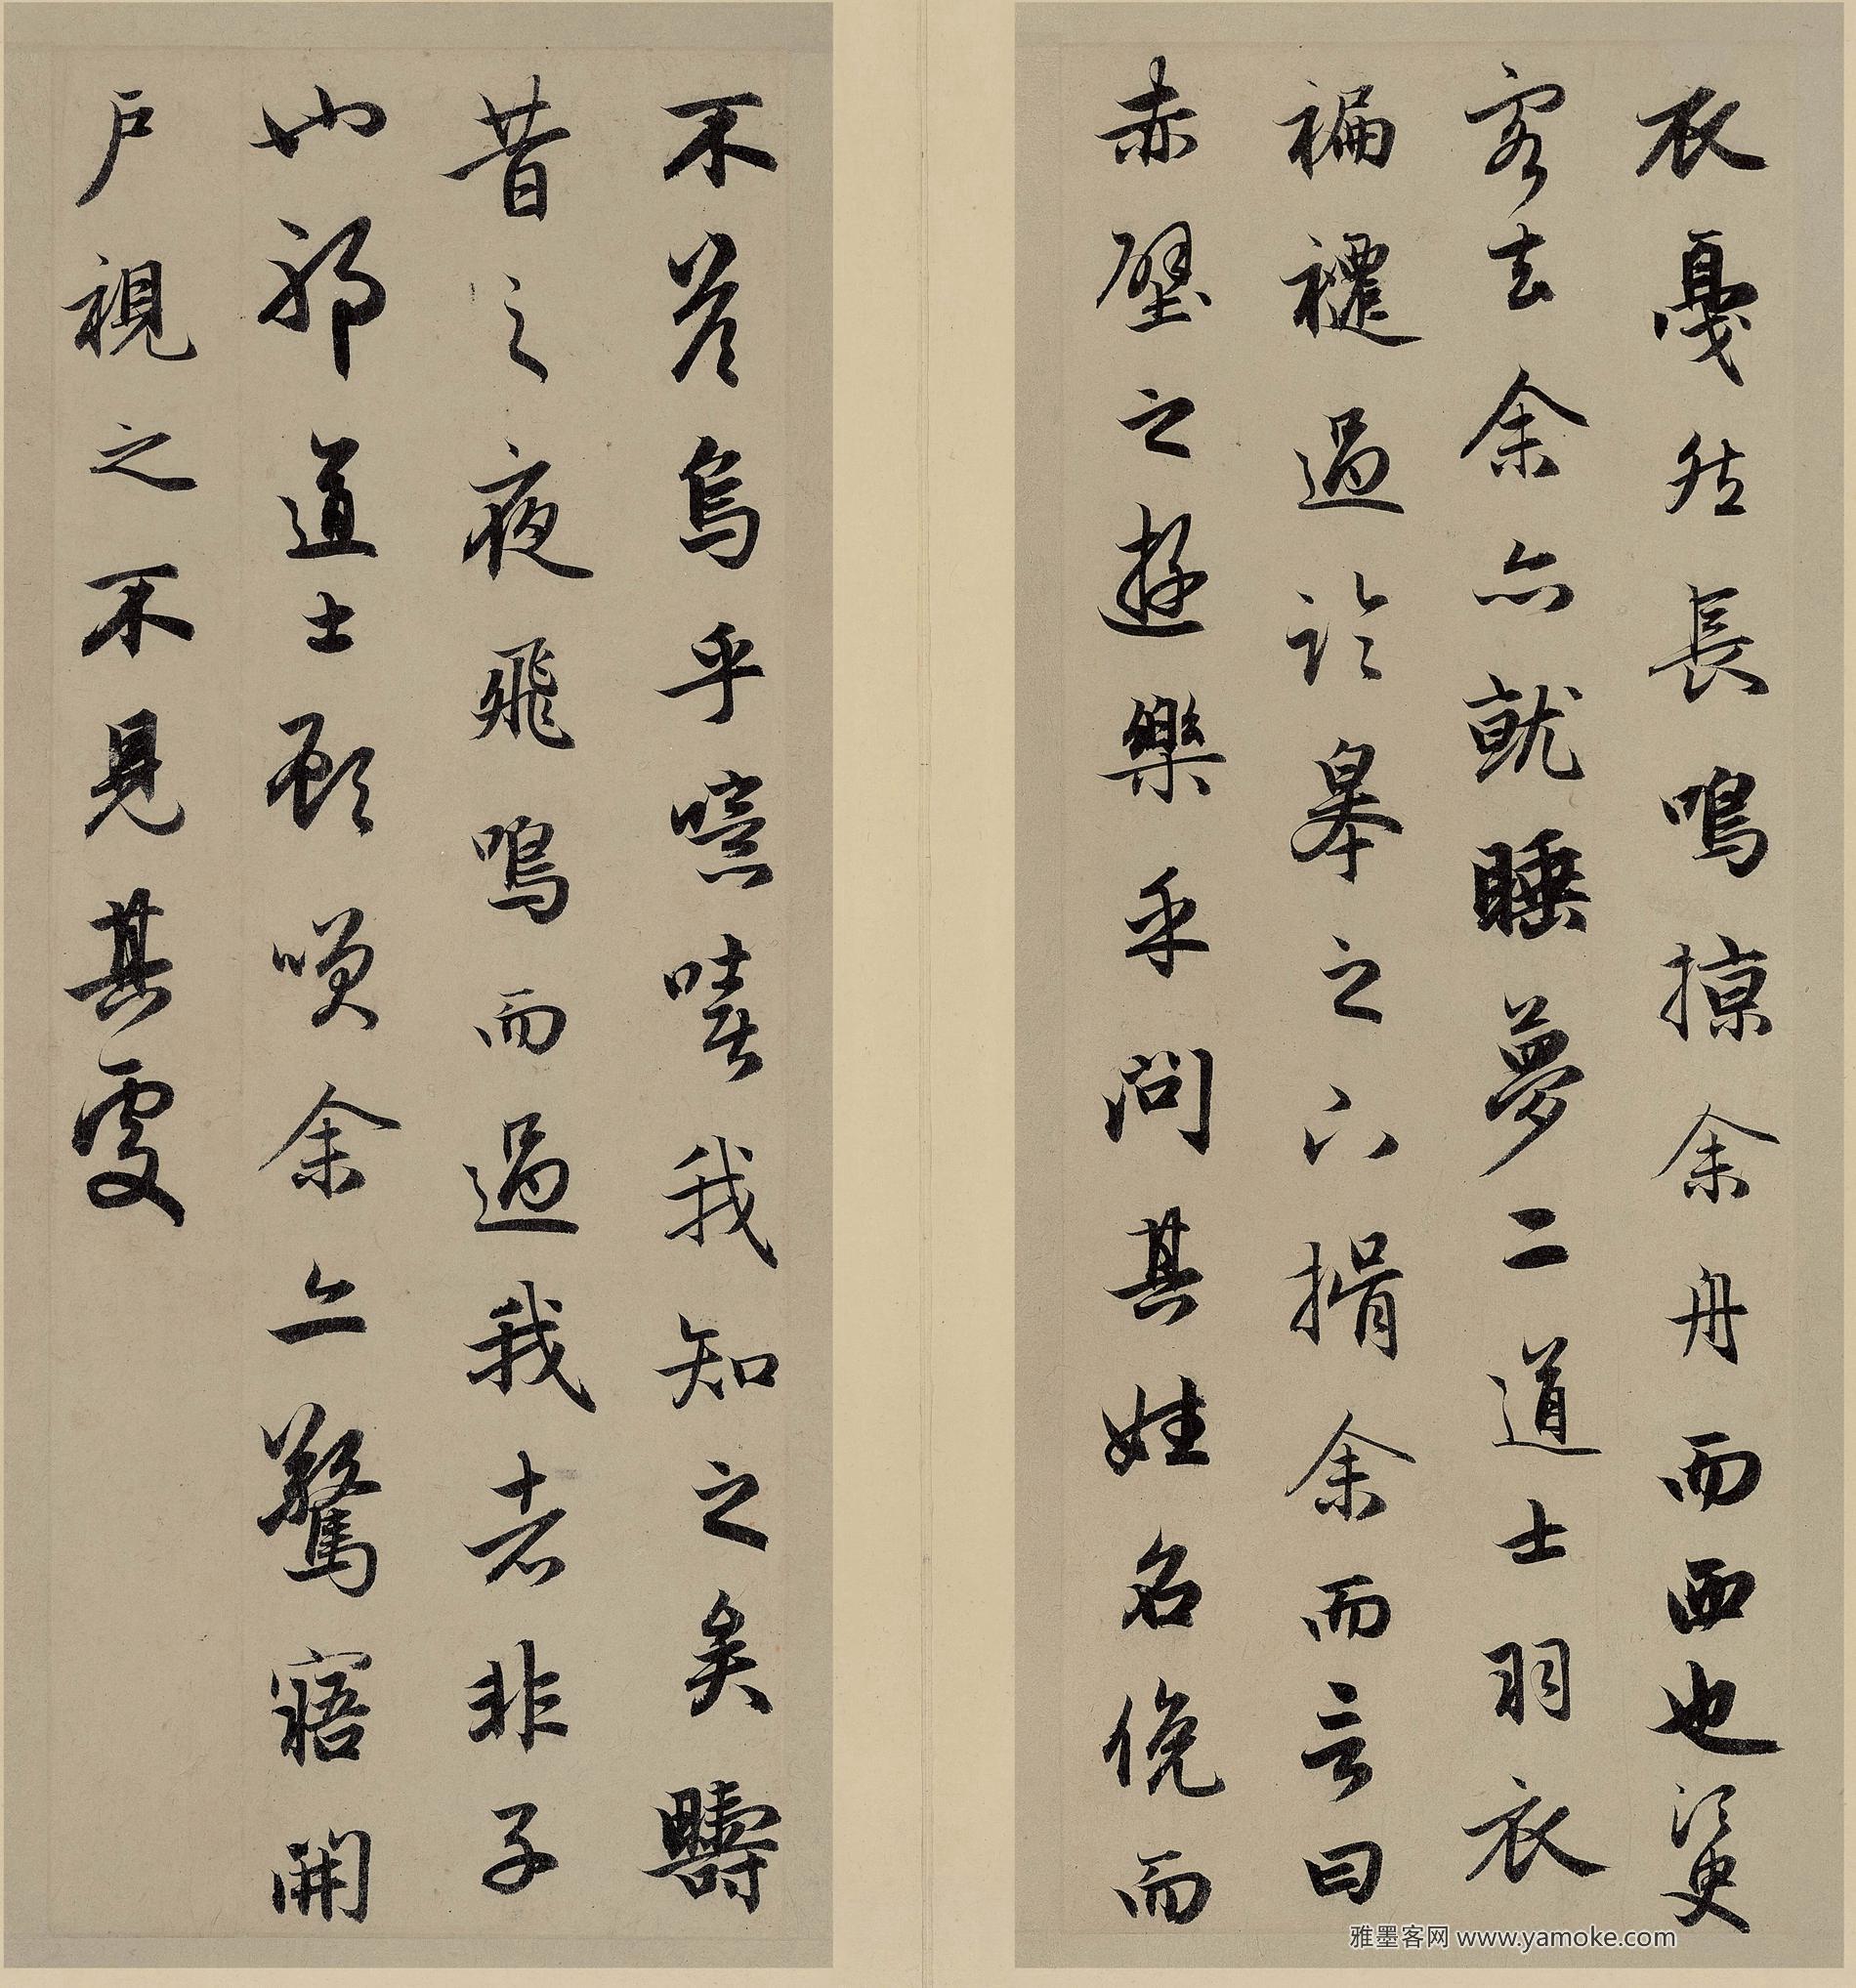 衣戛然長鳴掠余舟而西也須臾
客去余亦就睡夢二道士羽衣
褊褼過臨皋之下揖余而言曰
赤壁之遊樂乎問其姓名俛而
不答烏乎噫嘻我知之矣疇
昔之夜飛鳴而過我者非子
也邪道士顧唉余亦驚寤開
戶視之不見其處
雅墨客网 www.yamoke.com